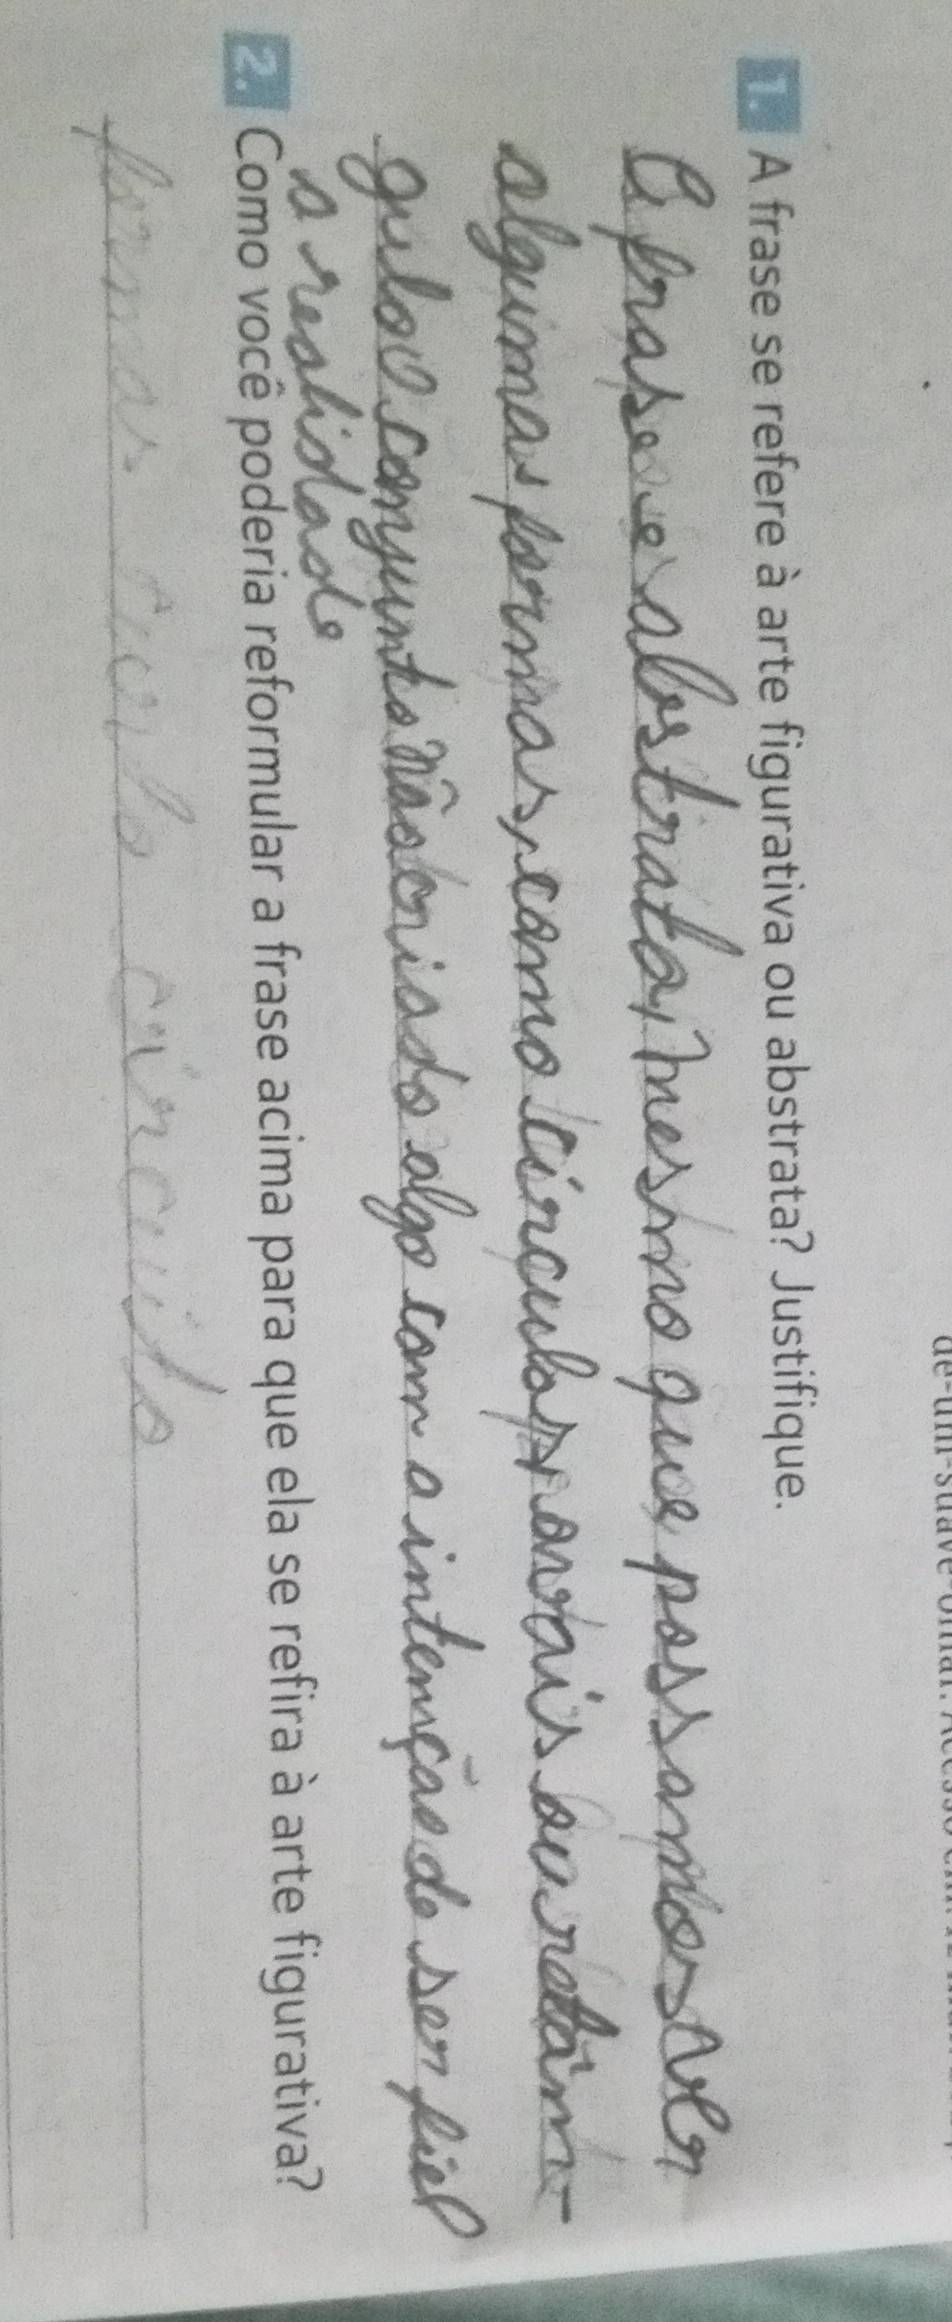 1. A frase se refere à arte figurativa ou abstrata? Justifique.
A frase e abstrata, mesmo que possamos ver
algumas formas, como circulos, ovais ou retân-
gulo o conjunto não criado algo com a intenção de ser fiel
a realidade
2. Como você poderia reformular a frase acima para que ela se refira à arte figurativa?
formas circulo circuito